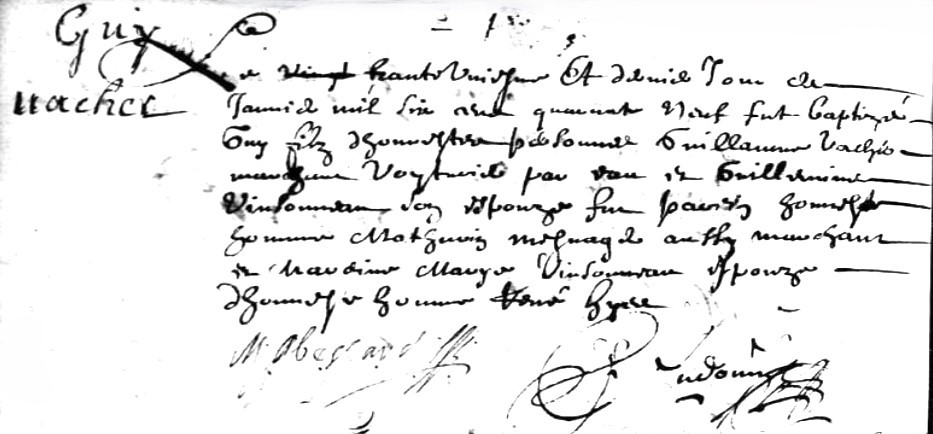 Guy
vacher
Le vingt trante uniesme Et dernier Jour de
Janvier mil six cens quarante Neuf fut baptizé
Guy filz d'honneste personne Guillaume Vacher
marchant Voyturier par eau et Guillemine
Vinsonneau son espouze fut parein honneste
homme Mathurin mesnager aussy marchant
et Mareine Marye Vinsonneau espouze
d'honneste homme René